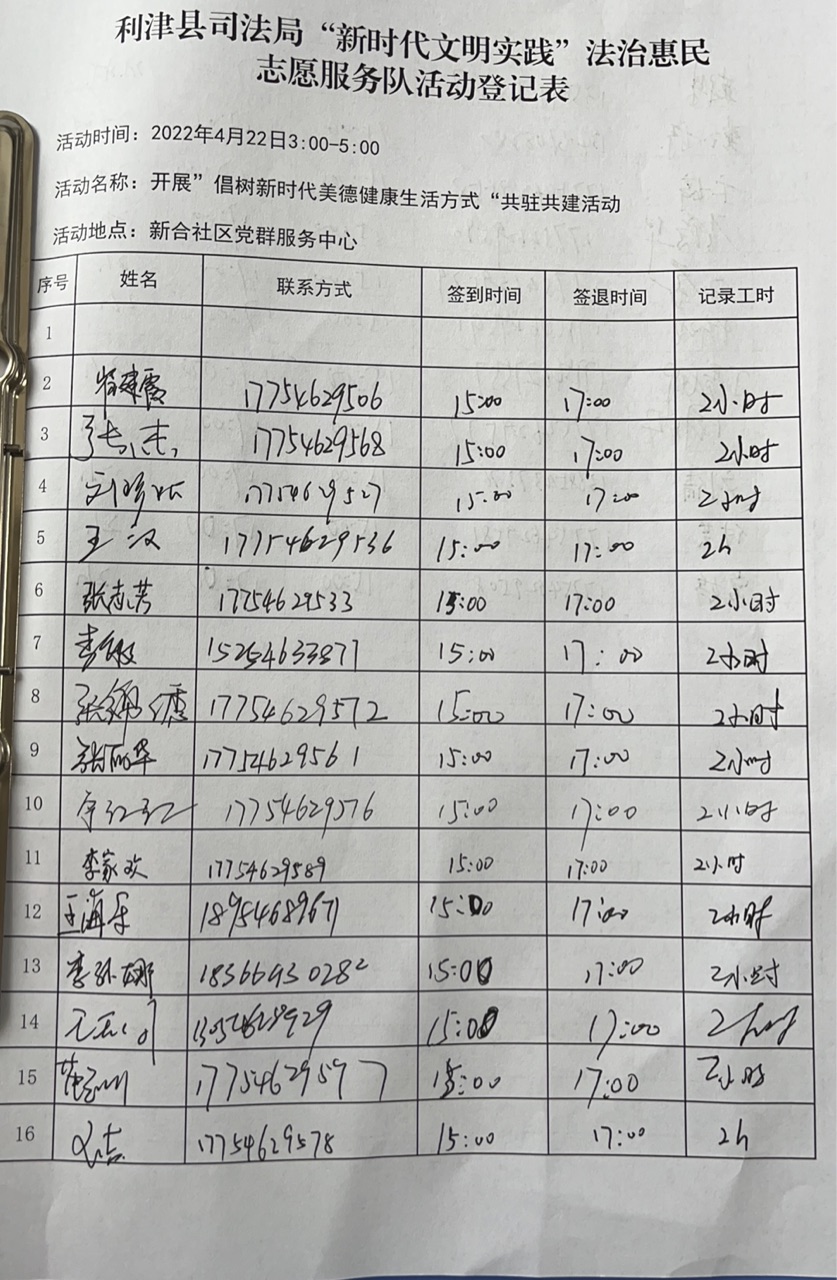 利津县司法局“新时代文明实践”法治惠民
志愿服务队活动登记表
活动时间：2022年4月22日3:00-5:00
活动名称：开展”倡树新时代美德健康生活方式“共驻共建活动
活动地点：新合社区党群服务中心
序号 姓名 联系方式 签到时间 签退时间 记录工时
1
2 17754629506 15:00 17:00 2小时
3 张杰 17754629568 15:00 17:00 2小时
4 17754629527 15:00 17:00 2小时
5 王汉 17754629536 15:00 17:00 2h
6 张志芳 17754629533 15:00 17:00 2小时
7 李敏 15254633877 15:00 17:00 2小时
8 17754629572 15:00 17:00 2小时
9 张丽华 17754629561 15:00 17:00 2小时
10 17754629576 15:00 17:00 2小时
11 李家欢 17754629589 15:00 17:00 2小时
12 王海乐 18954689671 15:00 17:00 2小时
13 李孙娜 18366930282 15:00 17:00 2小时
14 15:00 17:00 2小时
15 17754629597 15:00 17:00 2小时
16 17754629578 15:00 17:00 2h